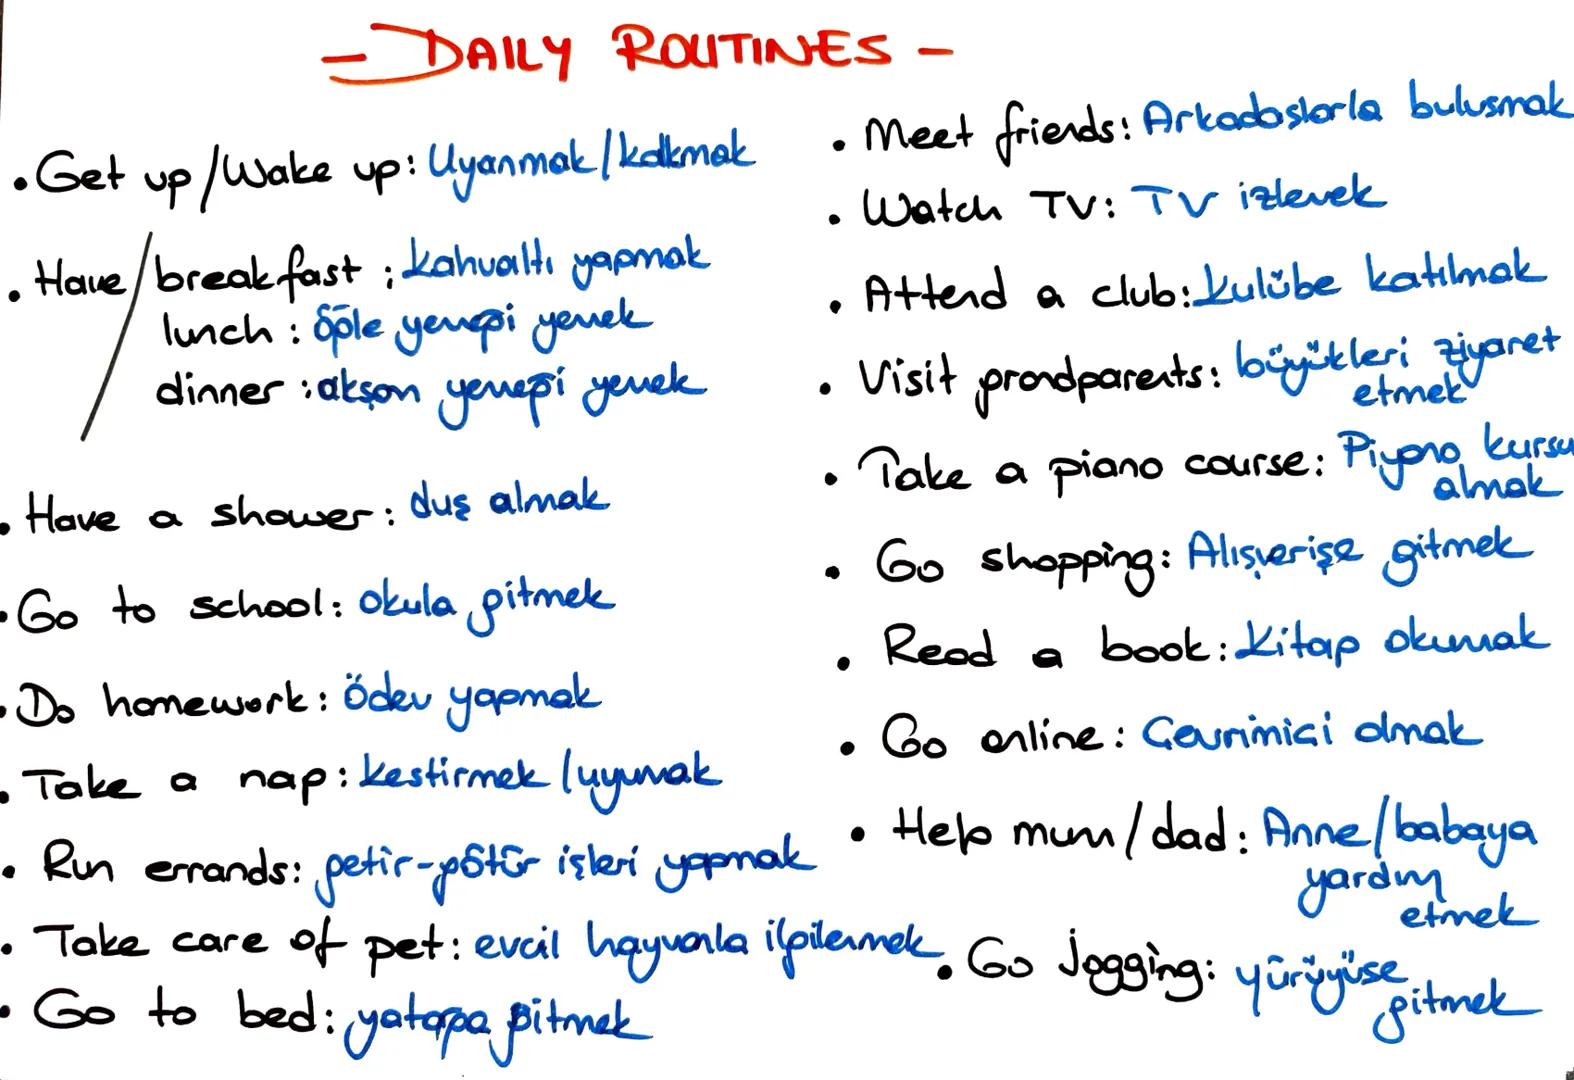 - DAILY ROUTINES -
• Get up / Wake up: Uyanmak / kalkmak
• Have / breakfast : kahvaltı yapmak
lunch : öğle yemeği yemek
dinner : akşam yemeği yemek
• Have a shower: duş almak
• Go to school: okula gitmek
• Do homework: Ödev yapmak
• Take a nap: kestirmek / uyumak
• Run errands: getir-götür işleri yapmak
• Take care of pet: evcil hayvanla ilgilenmek
• Go to bed: yatağa gitmek
• Meet friends: Arkadaşlarla buluşmak
• Watch TV: TV izlemek
• Attend a club: kulübe katılmak
• Visit grandparents: büyükleri ziyaret
etmek
• Take a piano course: Piyano kursu
almak
• Go shopping: Alışverişe gitmek
• Read a book: kitap okumak
• Go online: Çevrimiçi olmak
• Help mum / dad: Anne / babaya
yardım
etmek
• Go Jogging: yürüyüşe
gitmek